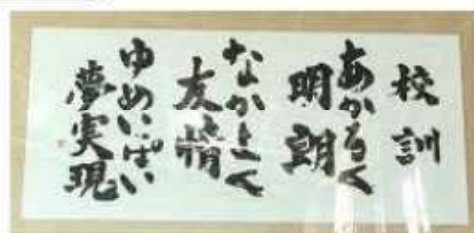 校訓
あかるく
明朗
なかよく
友情
ゆめいっぱい
夢実現